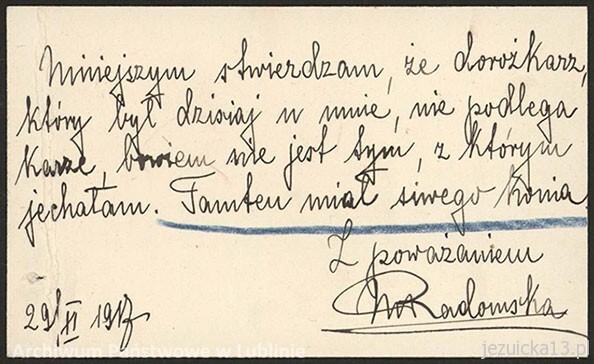 Niniejszym stwierdzam, że dorożkarz,
który był dzisiaj u mnie, nie podlega
karze, bowiem nie jest tym, z którym
jechałam. Tamten miał siwego konia.
Z poważaniem
Radomska
29/II 1917
Archiwum Państwowe w Lublinie
jezuicka13.pl